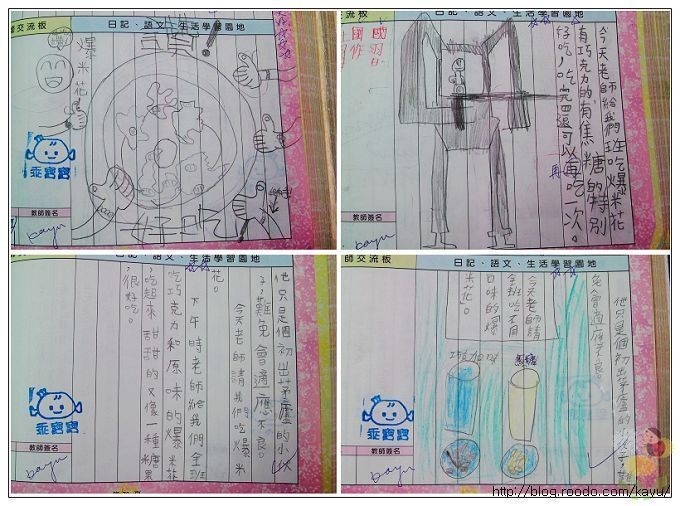 師交流板
日記、語文、生活學習園地
爆米花
好吃
乖寶寶
教師簽名
kayu
師交流板
日記、語文、生活學習園地
今天老師給我們班吃爆米花
有巧克力的有焦糖的特別
好吃,吃完還可以再吃一次。
教師簽名
kayu
日記、語文、生活學習園地
他只是個初出茅廬的小伙
子,難免會適應不良。
今天老師請我們吃爆米
花。
下午時老師給我們全班
吃巧克力和原味的爆米花
,吃起來甜甜的又像一種糖果
,很好吃。
乖寶寶
教師簽名
kayu
師交流板
日記、語文、生活學習園地
他只是個初出茅廬的小伙子,難
免會適應不良。
今天老師請
全班吃不同
口味的爆
米花。
焦糖
乖寶寶
教師簽名
kayu
http://blog.roodo.com/kayu/